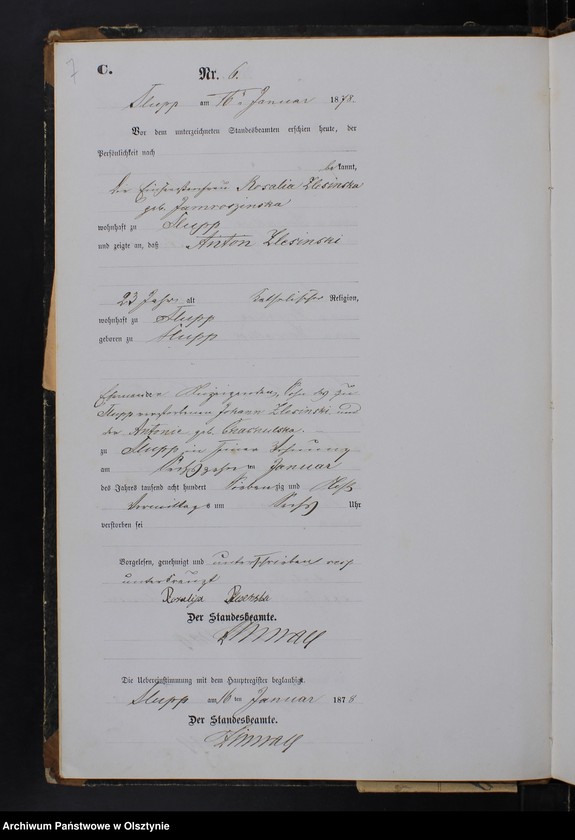 7
C.
Nr. 6.
Slupp am 16 Januar 1878.
Vor dem unterzeichneten Standesbeamten erschien heute, der
Persönlichkeit nach
bekannt,
die Rosalia Zlesinska
geb. Jamroszinska
wohnhaft zu Slupp
und zeigte an, daß Anton Zlesinski
23 Jahr alt katholischer Religion,
wohnhaft zu Slupp
geboren zu Slupp
Ehemann Anzeigenden, Sohn des zu
Slupp verstorbenen Johann Zlesinski und
der Antonie geb.
zu Slupp in seiner Wohnung
am Januar
des Jahres tausend acht hundert siebenzig und acht
Vormittags um sechs Uhr
verstorben sei
Vorgelesen, genehmigt und unterschrieben
unterkreuzt
Rosalija
Der Standesbeamte.
Die Uebereinstimmung mit dem Hauptregister beglaubigt.
Slupp am 16ten Januar 1878
Der Standesbeamte.
Archiwum Państwowe w Olsztynie